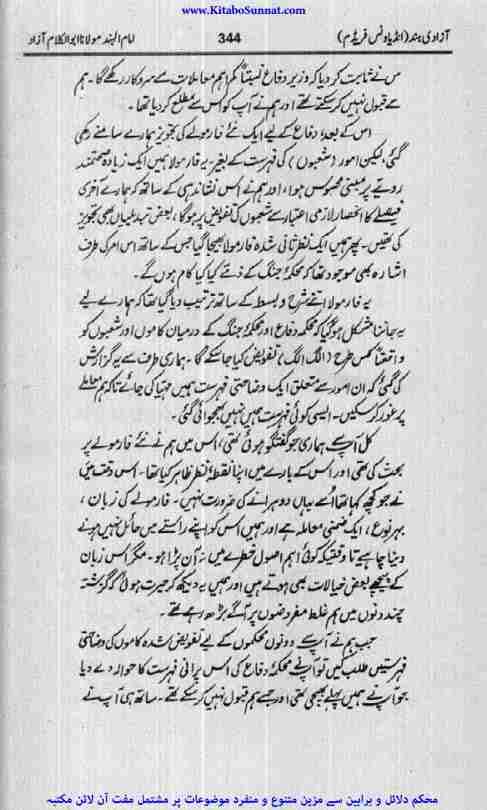 www.KitaboSunnat.com
آزادی ہند (انڈیا ونس فریڈم)
344
امام الہند مولانا ابوالکلام آزاد
س نے ثابت کر دیا کہ وزیر دفاع نسبتاً کم اہم معاملات سے سروکار رکھے گا۔ ہم
سے قبول نہیں کر سکتے تھے اور ہم نے آپ کو اس سے مطلع کر دیا تھا۔
اس کے بعد، دفاع کے لیے ایک نئے فارمولے کی تجویز ہمارے سامنے رکھی
گئی، لیکن امور (شعبوں) کی فہرست کے بغیر۔ یہ فارمولا ہمیں ایک زیادہ صحتمند
رویے پر مبنی محسوس ہوا، اور ہم نے اس نشاندہی کے ساتھ کہ ہمارے آخری
فیصلے کا انحصار لازمی اعتبار سے شعبوں کی تفویض پر ہوگا، بعض تبدیلیاں بھی تجویز
کی تھیں۔ پھر ہمیں ایک نظر ثانی شدہ فارمولا بھیجا گیا جس کے ساتھ اس امر کی طرف
اشارہ بھی موجود تھا کہ محکمۂ جنگ کے ذمے کیا کیا کام ہوں گے۔
یہ فارمولا اتنے شرح و بسط کے ساتھ ترتیب دیا گیا تھا کہ ہمارے لیے
یہ جاننا مشکل ہو گیا کہ محکمہ دفاع اور محکمۂ جنگ کے درمیان کاموں اور شعبوں کو
واقعتاً کس طرح (الگ الگ) تفویض کیا جا سکے گا۔ ہماری طرف سے یہ گزارش
کی گئی کہ ان امور سے متعلق ایک وضاحتی فہرست ہمیں مہیا کی جائے تاکہ ہم معاملے
پر غور کر سکیں۔ ایسی کوئی فہرست ہمیں نہیں بھجوائی گئی۔
کل آپ سے ہماری جو گفتگو ہوئی تھی، اس میں ہم نے نئے فارمولے پر
بحث کی تھی اور اس کے بارے میں اپنا نقطۂ نظر ظاہر کیا تھا۔ اس وقت میں
نے جو کچھ کہا تھا اُسے یہاں دوہرانے کی ضرورت نہیں۔ فارمولے کی زبان،
بہر نوع، ایک ضمنی معاملہ ہے اور ہمیں اس کو اپنے راستے میں حائل نہیں ہونے
دینا چاہیے تا وقتیکہ کوئی اہم اصول خطرے میں نہ آن پڑا ہو۔ مگر اس زبان
کے پیچھے بعض خیالات بھی ہوتے ہیں اور ہمیں یہ دیکھ کر حیرت ہوئی کہ گزشتہ
چند دنوں میں ہم غلط مفروضوں پر آگے بڑھ رہے تھے۔
جب ہم نے آپ سے دونوں محکموں کے لیے تفویض شدہ کاموں کی وضاحتی
فہرستیں طلب کیں تو آپ نے محکمۂ دفاع کی اس پرانی فہرست کا حوالہ دے دیا
جو آپ نے ہمیں پہلے بھیجی تھی اور جسے ہم قبول نہیں کر سکے تھے۔ ساتھ ہی آپ نے
محکم دلائل و براہین سے مزین متنوع و منفرد موضوعات پر مشتمل مفت آن لائن مکتبہ